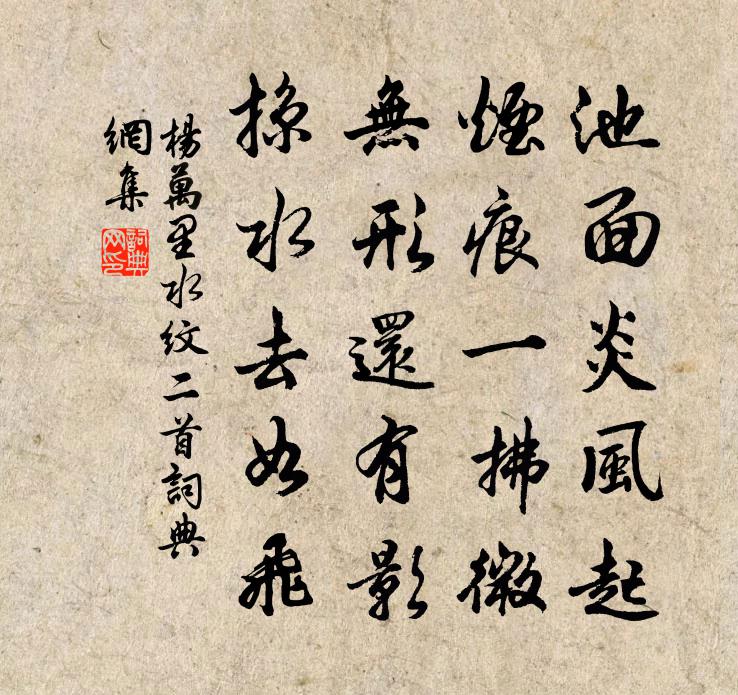 池面炎風起
煙痕一拂微
無形還有影
掠水去如飛
楊萬里水紋二首詞典
網集
詞典
网印